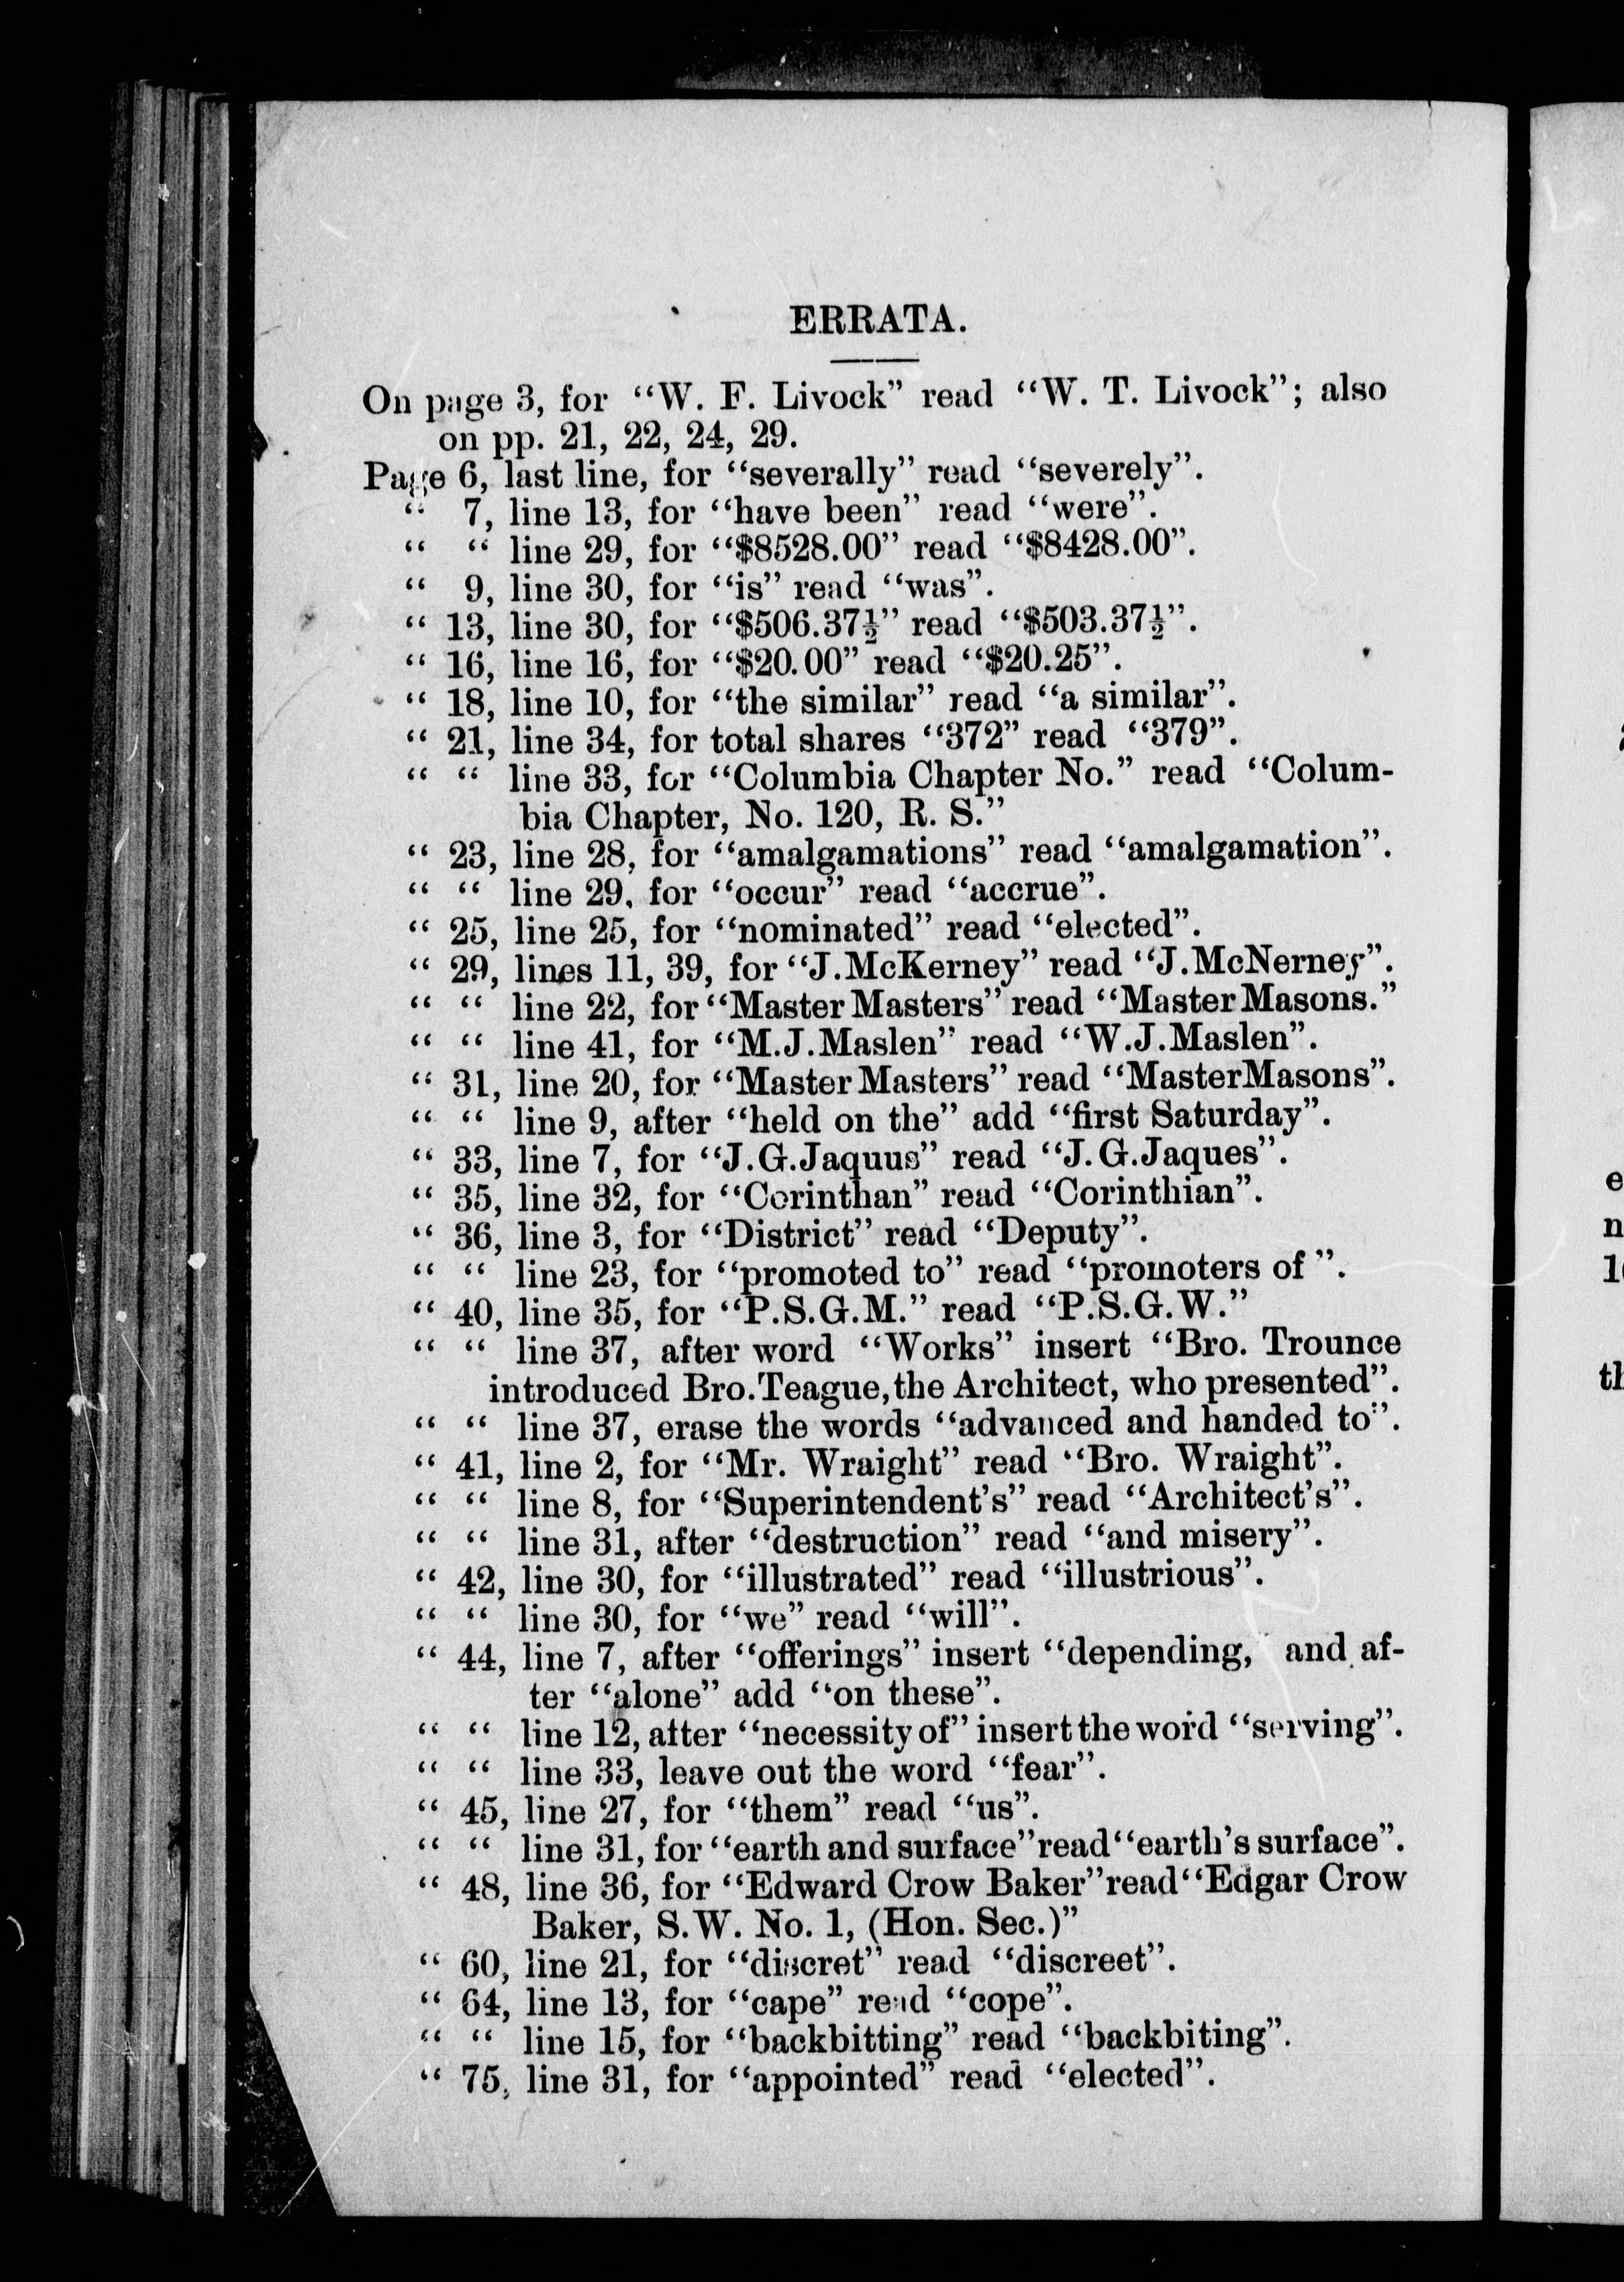 ERRATA.
On page 3, for "W. F. Livock" read "W. T. Livock"; also
on pp. 21, 22, 24, 29.
Page 6, last line, for "severally" read "severely".
" 7, line 13, for "have been" read "were".
" " line 29, for "$8528.00" read "$8428.00".
" 9, line 30, for "is" read "was".
" 13, line 30, for "$506.37½" read "$503.37½".
" 16, line 16, for "$20.00" read "$20.25".
" 18, line 10, for "the similar" read "a similar".
" 21, line 34, for total shares "372" read "379".
" " line 33, for "Columbia Chapter No." read "Colum-
bia Chapter, No. 120, R. S."
" 23, line 28, for "amalgamations" read "amalgamation".
" " line 29, for "occur" read "accrue".
" 25, line 25, for "nominated" read "elected".
" 29, lines 11, 39, for "J.McKerney" read "J.McNerney".
" " line 22, for "Master Masters" read "Master Masons."
" " line 41, for "M.J.Maslen" read "W.J.Maslen".
" 31, line 20, for "Master Masters" read "MasterMasons".
" " line 9, after "held on the" add "first Saturday".
" 33, line 7, for "J.G.Jaquus" read "J.G.Jaques".
" 35, line 32, for "Corinthan" read "Corinthian".
" 36, line 3, for "District" read "Deputy".
" " line 23, for "promoted to" read "promoters of".
" 40, line 35, for "P.S.G.M." read "P.S.G.W."
" " line 37, after word "Works" insert "Bro. Trounce
introduced Bro.Teague,the Architect, who presented".
" " line 37, erase the words "advanced and handed to".
" 41, line 2, for "Mr. Wraight" read "Bro. Wraight".
" " line 8, for "Superintendent's" read "Architect's".
" " line 31, after "destruction" read "and misery".
" 42, line 30, for "illustrated" read "illustrious".
" " line 30, for "we" read "will".
" 44, line 7, after "offerings" insert "depending," and af-
ter "alone" add "on these".
" " line 12, after "necessity of" insert the word "serving".
" " line 33, leave out the word "fear".
" 45, line 27, for "them" read "us".
" " line 31, for "earth and surface" read "earth's surface".
" 48, line 36, for "Edward Crow Baker" read "Edgar Crow
Baker, S.W. No. 1, (Hon. Sec.)"
" 60, line 21, for "discret" read "discreet".
" 64, line 13, for "cape" read "cope".
" " line 15, for "backbitting" read "backbiting".
" 75, line 31, for "appointed" read "elected".